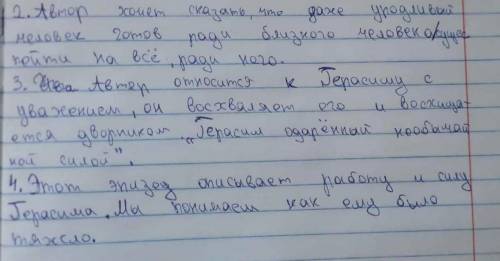 2. Автор хочет сказать, что даже уродливый
человек готов ради близкого человека/суще
пойти на всё, ради кого.
3. Автор относится к Герасиму с
уважением, он восхваляет его и восхища-
ется дворником. „Герасим одарённый необычай
ной силой".
4. Этот эпизод описывает работу и силу
Герасима. Мы понимаем как ему было
тяжело.